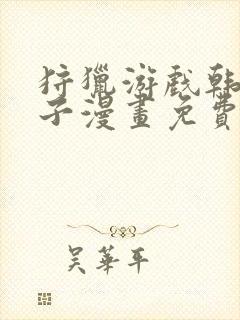 狩獵游戲韩
子漫畫免費
吴華平